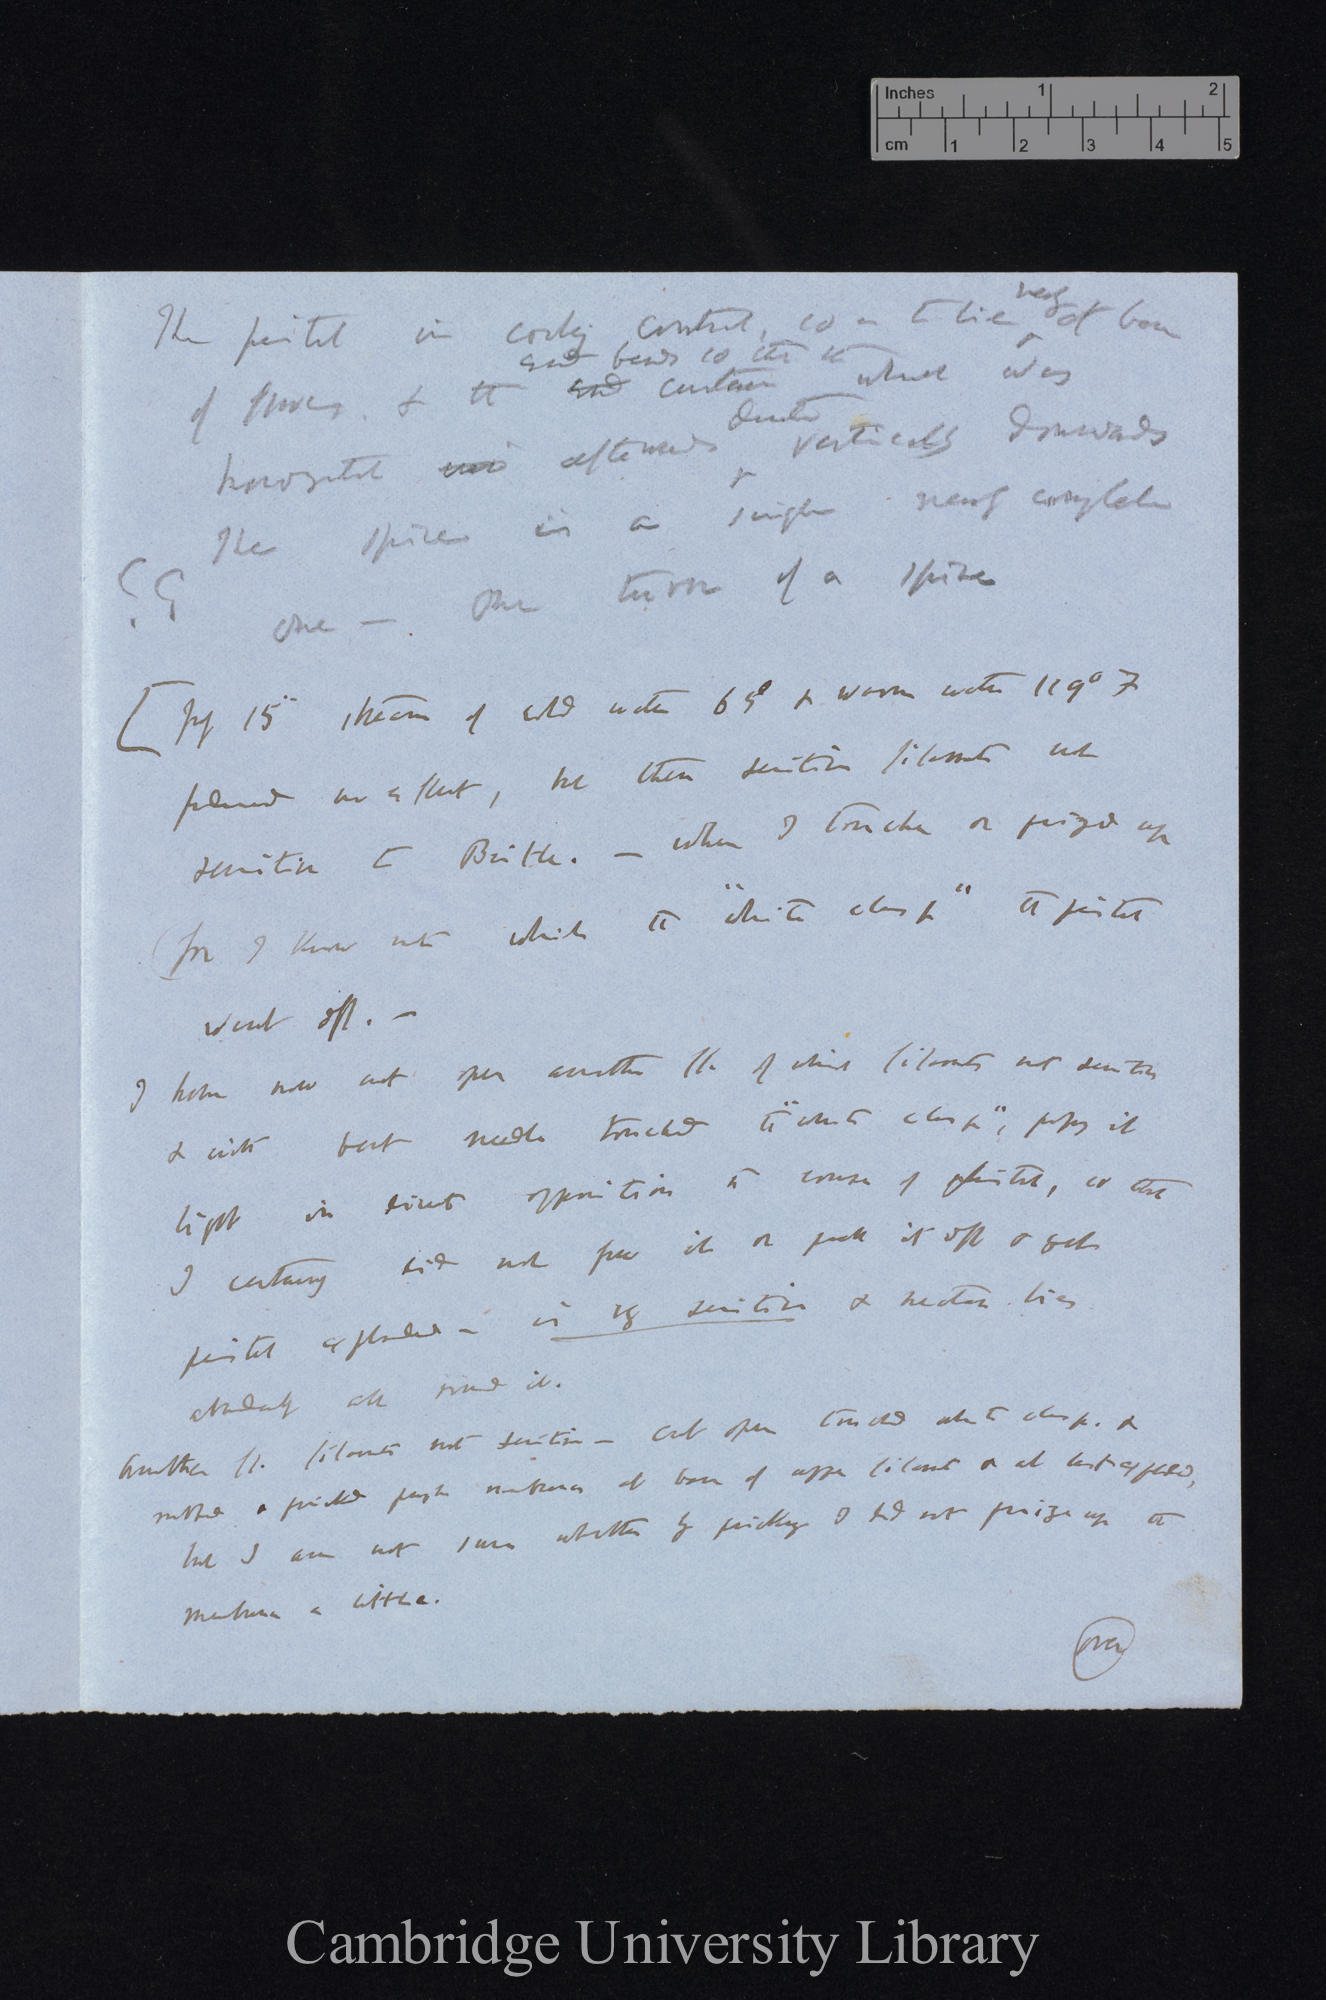 Inches 1 2
cm 1 2 3 4 5
The pistil in curling control, so as to lie nearly at base
of flower, & the end bends so that the end curtain which was
horizontal afterwards directed vertically downwards
The spire is a single nearly complete
?? one — One turn of a spire
[Feb 15" stream of cold water 65° & warm water 119° F
produced no effect, but then sensitive filaments not
sensitive to Bristle. — when I touched or prized up
(for I know not which the "white clasp" the pistil
went off. —
I have now cut open another fl. of which filaments not sensitive
& with bent needle touched the "white clasp", pressing it
light in direct opposition to course of pistil, so that
I certainly did not free it or push it off & yet
pistil exploded — is vy sensitive & nectar lies
absolutely all round it.
Another fl. filaments not sensitive — cut open touched white clasp. &
rubbed & pricked purple membrane at base of upper filament & at last exploded,
but I am not sure whether by pricking I did not prize up the
membrane a little.
over
Cambridge University Library